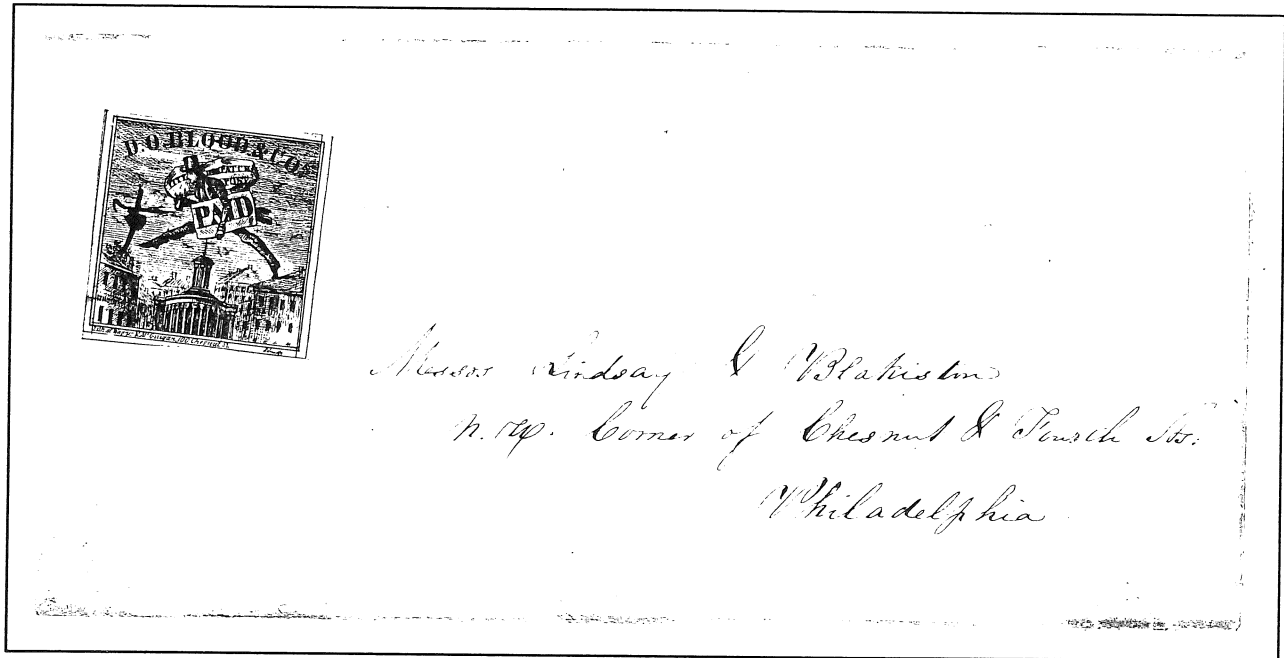 D.O. BLOOD & CO'S
CITY DESPATCH
POST
PAID
Messrs Lindsay & Blakiston
N.W. Corner of Chesnut & Fourth Sts.
Philadelphia